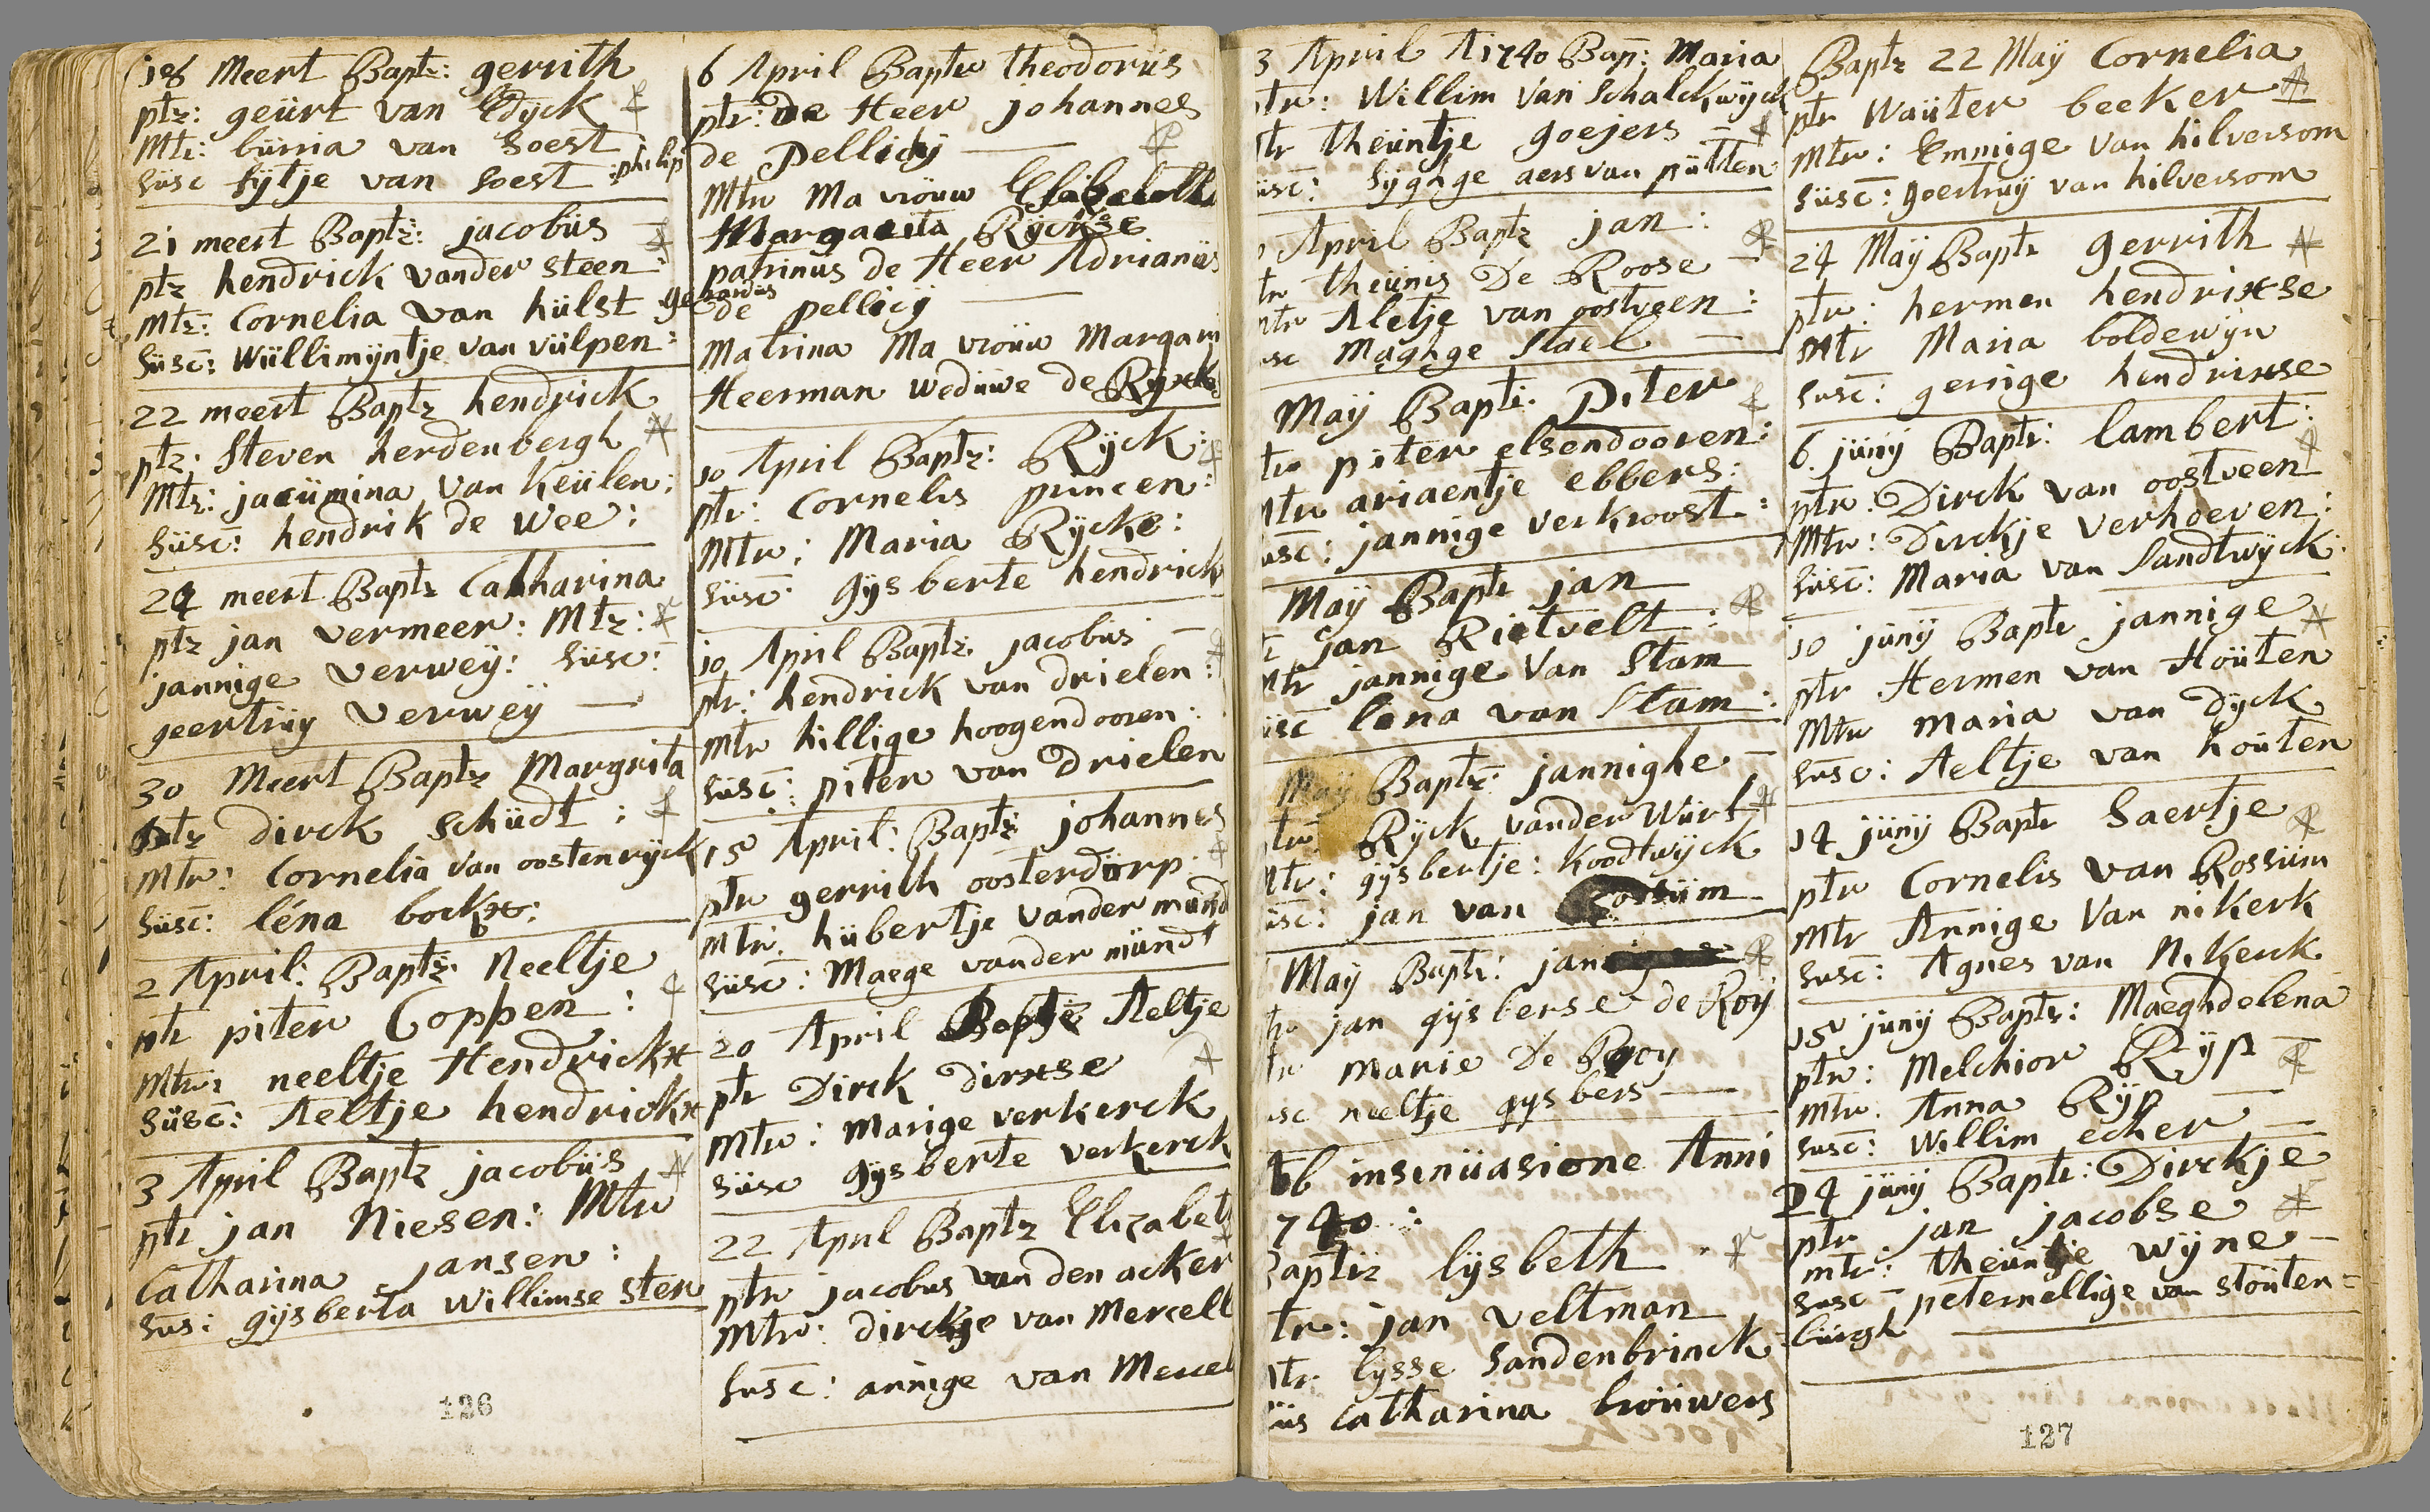 18 Meert Bapt: gerrith
ptr: geürt van Edijck
Mtr: bürria van Soest
Süsc fÿtje van soest :philip
21 meert Baptz: jacobüs
ptr hendrick vander steen
Mtr: Cornelia van hülst gerardus
Süsc: Wüllimÿntje van vülpen:
22 meert Baptz hendrick
ptr: Steven herdenbergh
Mtr: jacümina van Keülen:
Süsc: hendrik de Wee:
24 meert Baptz Catharina
ptr jan vermeer: Mtr:
jannige verweÿ: Süsc:
geertrüy verweÿ
30 Meert Baptz Margrita
ptr dirck Schüdt:
Mtr: Cornelia van oostenrÿck
Süsc: léna bockx:
2 April: Baptz: Neeltje
ptr piter Coppen:
Mtr: neeltje Hendrickx
Süsc: Aeltje hendrickx
3 April Baptz jacobüs
ptr jan Niesen: Mtr
Catharina jansen:
Sus: gÿsberta Willimse sten
126
6 April Baptz theodorüs
ptr: De Heer johannes
de Pellicij
Mtr Ma vroüw
Margarita Rÿckse
patrinus de Heer Adrianüs
de pellicij
Matrina Ma vroüw Margari
Heerman wedüwe de
10 April Baptz: Rÿck:
ptr: Cornelis princen:
Mtr: Maria Rÿcke:
Süsc: gÿsberte hendrick
10 April Baptz jacobüs
ptr: hendrick van drielen:
Mtr hillige hoogendooren:
Süsc: piter van Drielen
15 April: Baptz johannes
ptr gerrith oosterdörp
Mtr. hübertje vander münd
Süsc: Maege vander mündt
20 April Baptz Aeltje
ptr Dirck dirxse
Mtr: Marige verkerck
Süsc gÿsberte verkerck
22 April Baptz Elizabet
ptr jacobus van den acker
Mtr: dirckje van Mercell
Susc: annige van Mercel
3 April A 1740 Bap: Maria
ptr: Willim van Schalckwÿck
tr theüntje goejers
üsc: Sÿghge aers van pütten
April Baptz jan:
tr theünis De Roose
Mtr Aletje van oostveen:
usc Maghge Stael
Maÿ Baptz. Piter
tr piter elsendooren:
Mtr ariaentje ebbers:
usc: jannige verkroost:
Maÿ Baptz jan
jan Rietvelt:
Mtr jannige Van Stam
üsc lena van Stam:
Maÿ Baptz: jannighe
tr Rÿck vander Würf
Mtr: gÿsbertje: Koodtwÿck
üsc: jan van Rossüm
May Baptz: jan
tr jan gÿsberse de Roij
tr marie De Rooy
usc neeltje gÿsbers
ab insinüasione Anni
740:
Baptiz lÿsbeth
tr: jan veltman
Mtr lÿsse Sandenbrinck
üs Catharina broüwers
Baptz 22 Maÿ Cornelia
ptr Waüter beeker
Mtr: Emmige van hilversom
Süsc: goertruÿ van hilversom
24 Maÿ Baptz gerrith
ptr: hermen hendrixse
Mtr Maria boldewÿn
Susc: gerrige hendrixse
6 jünÿ Baptz: lambert:
ptr: Dirck van oostveen
Mtr: Dirckje verhoeven:
Süsc: Maria van Sandtwÿck:
10 jünÿ Baptz jannige
ptr Hermen van Hoüten
Mtr Maria van Dÿck
Susc: Aeltje van hoüten
14 jünÿ Baptz Saertje
ptr Cornelis van Rossüm
Mtr Annige Van nikerk
Susc: Agnes van Nikerck
15 jünÿ Baptz: Maeghdelena
ptr: Melchior Rÿp
Mtr. Anna Rÿp
Susc: Willim ecker
24 jünÿ Baptz: Dirckje
ptr jan jacobse
mtr: theüntje wÿne
Susc peternellige van stoüten=
bürgh
127